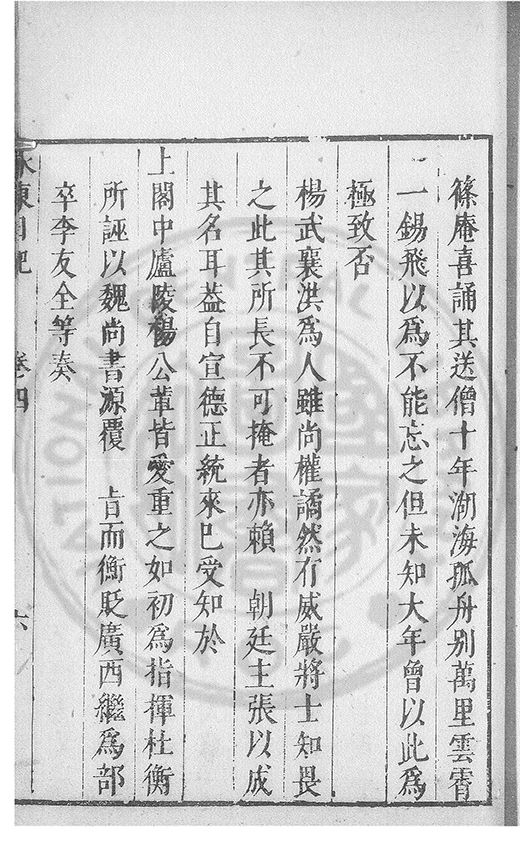 篠庵喜誦其送僧十年湖海孤舟别萬里雲霄
一錫飛以爲不能忘之但未知大年曾以此爲
極致否
楊武襄洪爲人雖尚權譎然有威嚴將士知畏
之此其所長不可掩者亦賴　朝廷主張以成
其名耳葢自宣德正統來已受知於
上閣中廬陵楊公輩皆愛重之如初爲指揮杜衡
所誣以魏尚書源覆　旨而衡貶廣西繼爲部
卒李友全等奏
水東日記　卷四　六